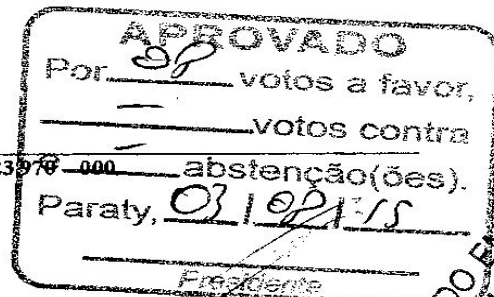 APROVADO
Por 08 votos a favor,
— votos contra
23970 000 — abstenção(ões).
Paraty, 03 / 08 / 15
Presidente
DO E